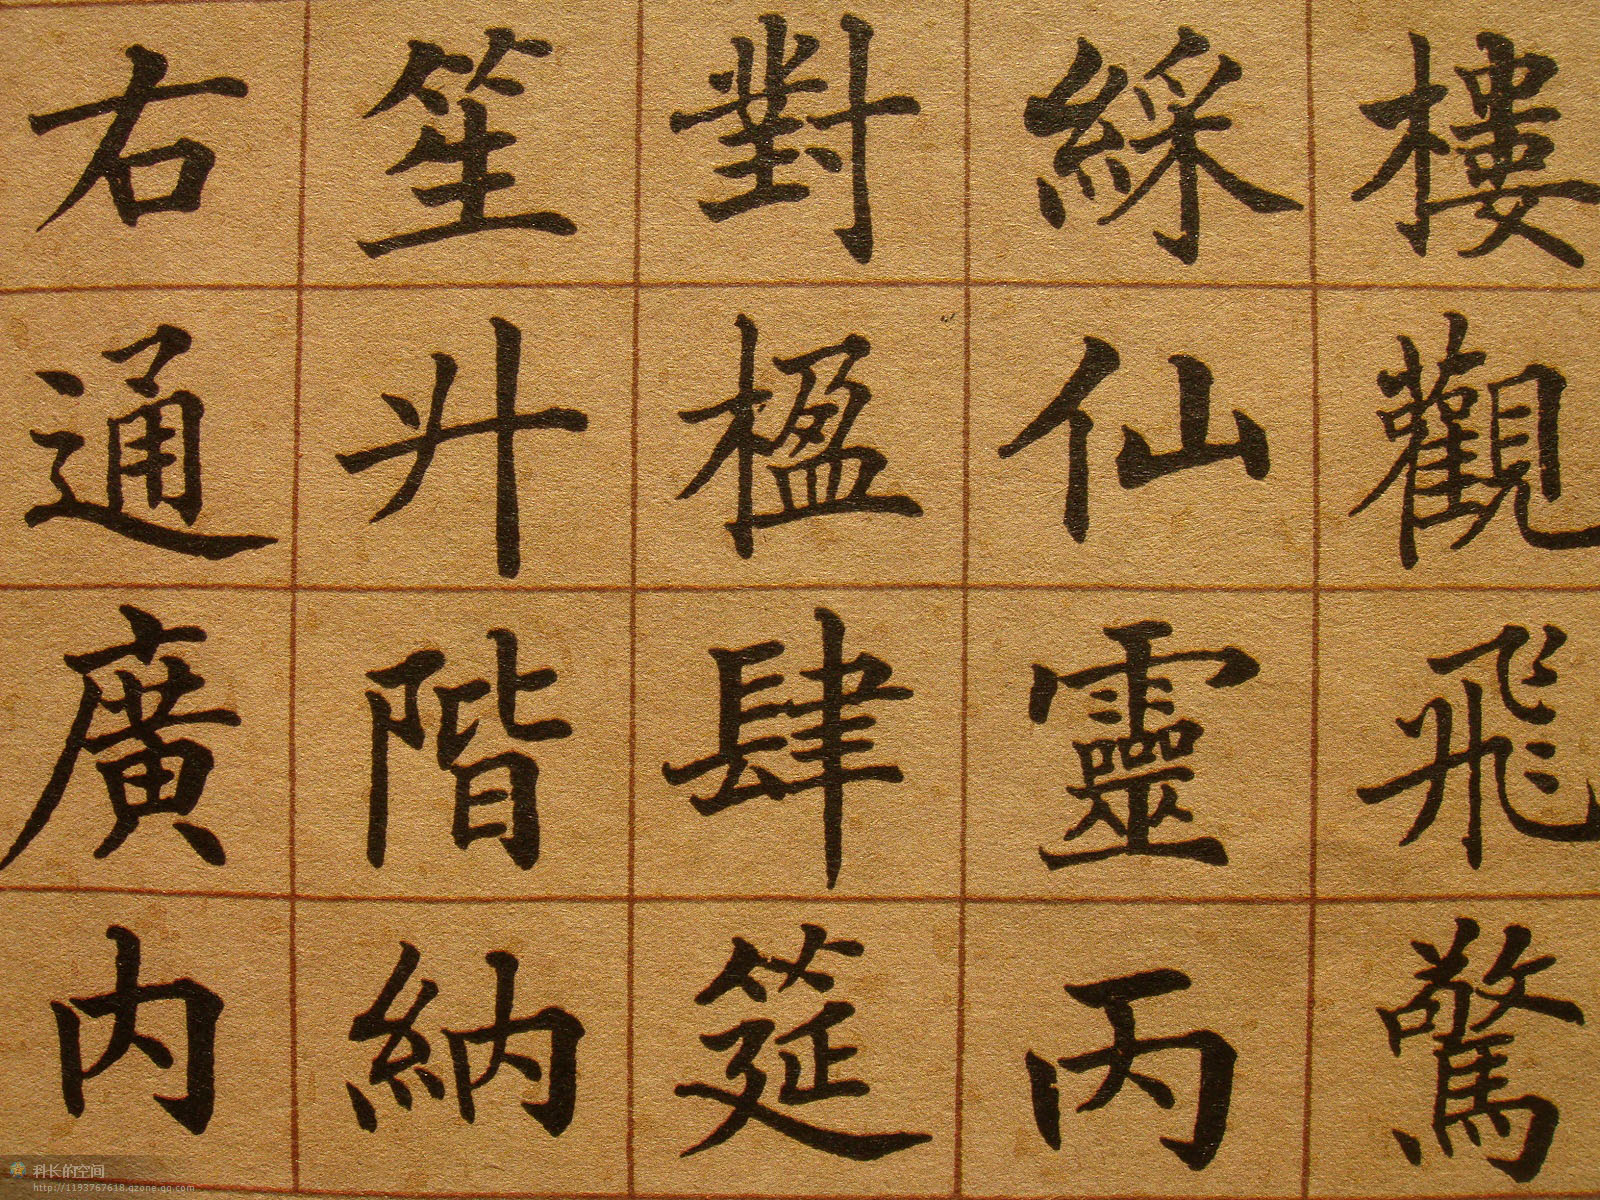 樓觀飛驚
綵仙靈丙
對楹肆筵
笙升階納
右通廣內
科长的空间
http://1193767618.qzone.qq.com